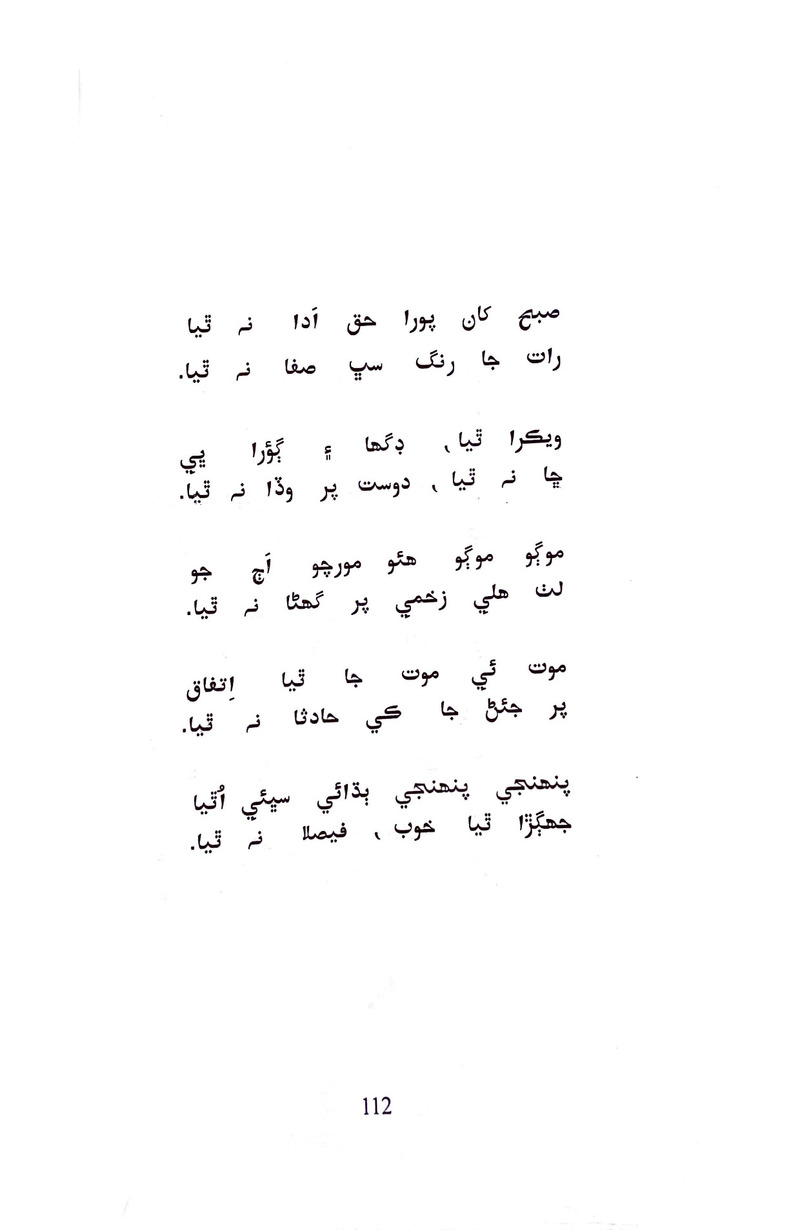 صبح کان پورا حق اَدا نہ ٿيا
رات جا رنگ سڀ صفا نہ ٿيا.
ويڪرا ٿيا، ڊگها ۽ ڳؤرا ڀي
ڇا نہ ٿيا، دوست پر وڏا نہ ٿيا.
موڳو موڳو هئو مورچو اَڄ جو
لٺ هلي زخمي پر گهڻا نہ ٿيا.
موت ئي موت جا ٿيا اِتفاق
پر جئڻ جا ڪي حادثا نہ ٿيا.
پنهنجي پنهنجي ٻڌائي سڀئي اُٿيا
جهڳڙا ٿيا خوب، فيصلا نہ ٿيا.
112